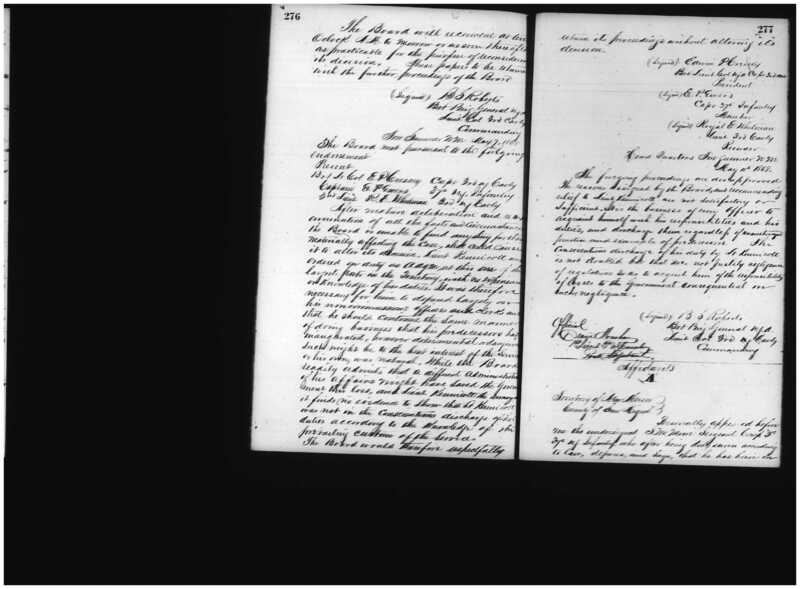 276
The Board will reconvene at ten
O'clock A.M. to morrow or as soon thereafter
as practicable for the purpose of reconsidering
its decision. These papers to be returned
with the further proceedings of the Board
(Signed) B S Roberts
Bvt Brig General U.S.A.
Lieut Col 3rd Cav'ly
Commanding
Fort Sumner N.M. May 7, 186
The Board met pursuant to the foregoing
endorsement
Present
Bvt Lt Col E P Captn 3rd U.S. Cav'ly
Captain E. P. 37th U.S. Infantry
2nd Lieut R. E. Whitman 3rd U.S. Cav'ly
After mature deliberation and a re-
examination of all the facts and circumstances
the Board is unable to find anything
materially affecting the case, that will cause
it to alter its decision. Lieut Hunnicott
ordered on duty as A.A.Q.M. at this one of the
largest posts in the Territory, with no experience
or knowledge of his duties. It was therefore
necessary for him to depend largely on
his noncommissioned officers and clerks and
that he should continue the same manner
of doing business that his predecessors had
inaugurated, however detrimental
such might be to the best interest of the service
or his own, was natural. While the Board
readily admits that a different administration
of his affairs might have saved the Govern-
ment this loss, and Lieut Hunnicott the
it finds no evidence to show that Lt Hunnicott
was not in the conscientious discharge of his
duties according to the knowledge of the
prevailing custom of the service.
The Board would therefore respectfully
277
return its proceedings without altering its
decision.
(Signed) Edwin P
Bvt Lieut Col U.S.A. Capt 3rd Cav
President
(Signed) E. P.
Capt 37 Infantry
Member
(Signed) Royal E Whitman
Lieut 3rd Cav'ly
Recorder
Head Quarters Fort Sumner N.M.
May 10th 186
The foregoing proceedings are disapproved
The reasons assigned by the Board, and recommending
relief to Lieut Hunnicott are not satisfactory or
sufficient. It is the business of every Officer to
acquaint himself with his responsibilities and his
duties, and discharge them regardless of
practice and example of predecessors. The
conscientious discharge of his duty by Lt Hunnicott
is not doubted but that does not justify negligence
of regulations so as to acquit him of the responsibility
of losses to the government consequential on
such negligence.
(Signed) B S Roberts
Bvt Brig General U.S.A.
Lieut Col 3rd U.S. Cav'ly
Commanding
Official
Affidavits
A
Territory of New Mexico
County of San Miguel
Personally appeared before
me the undersigned Sergeant Comp
37 U.S. Infantry who after being duly sworn according
to law, deposes and says, that he has been in